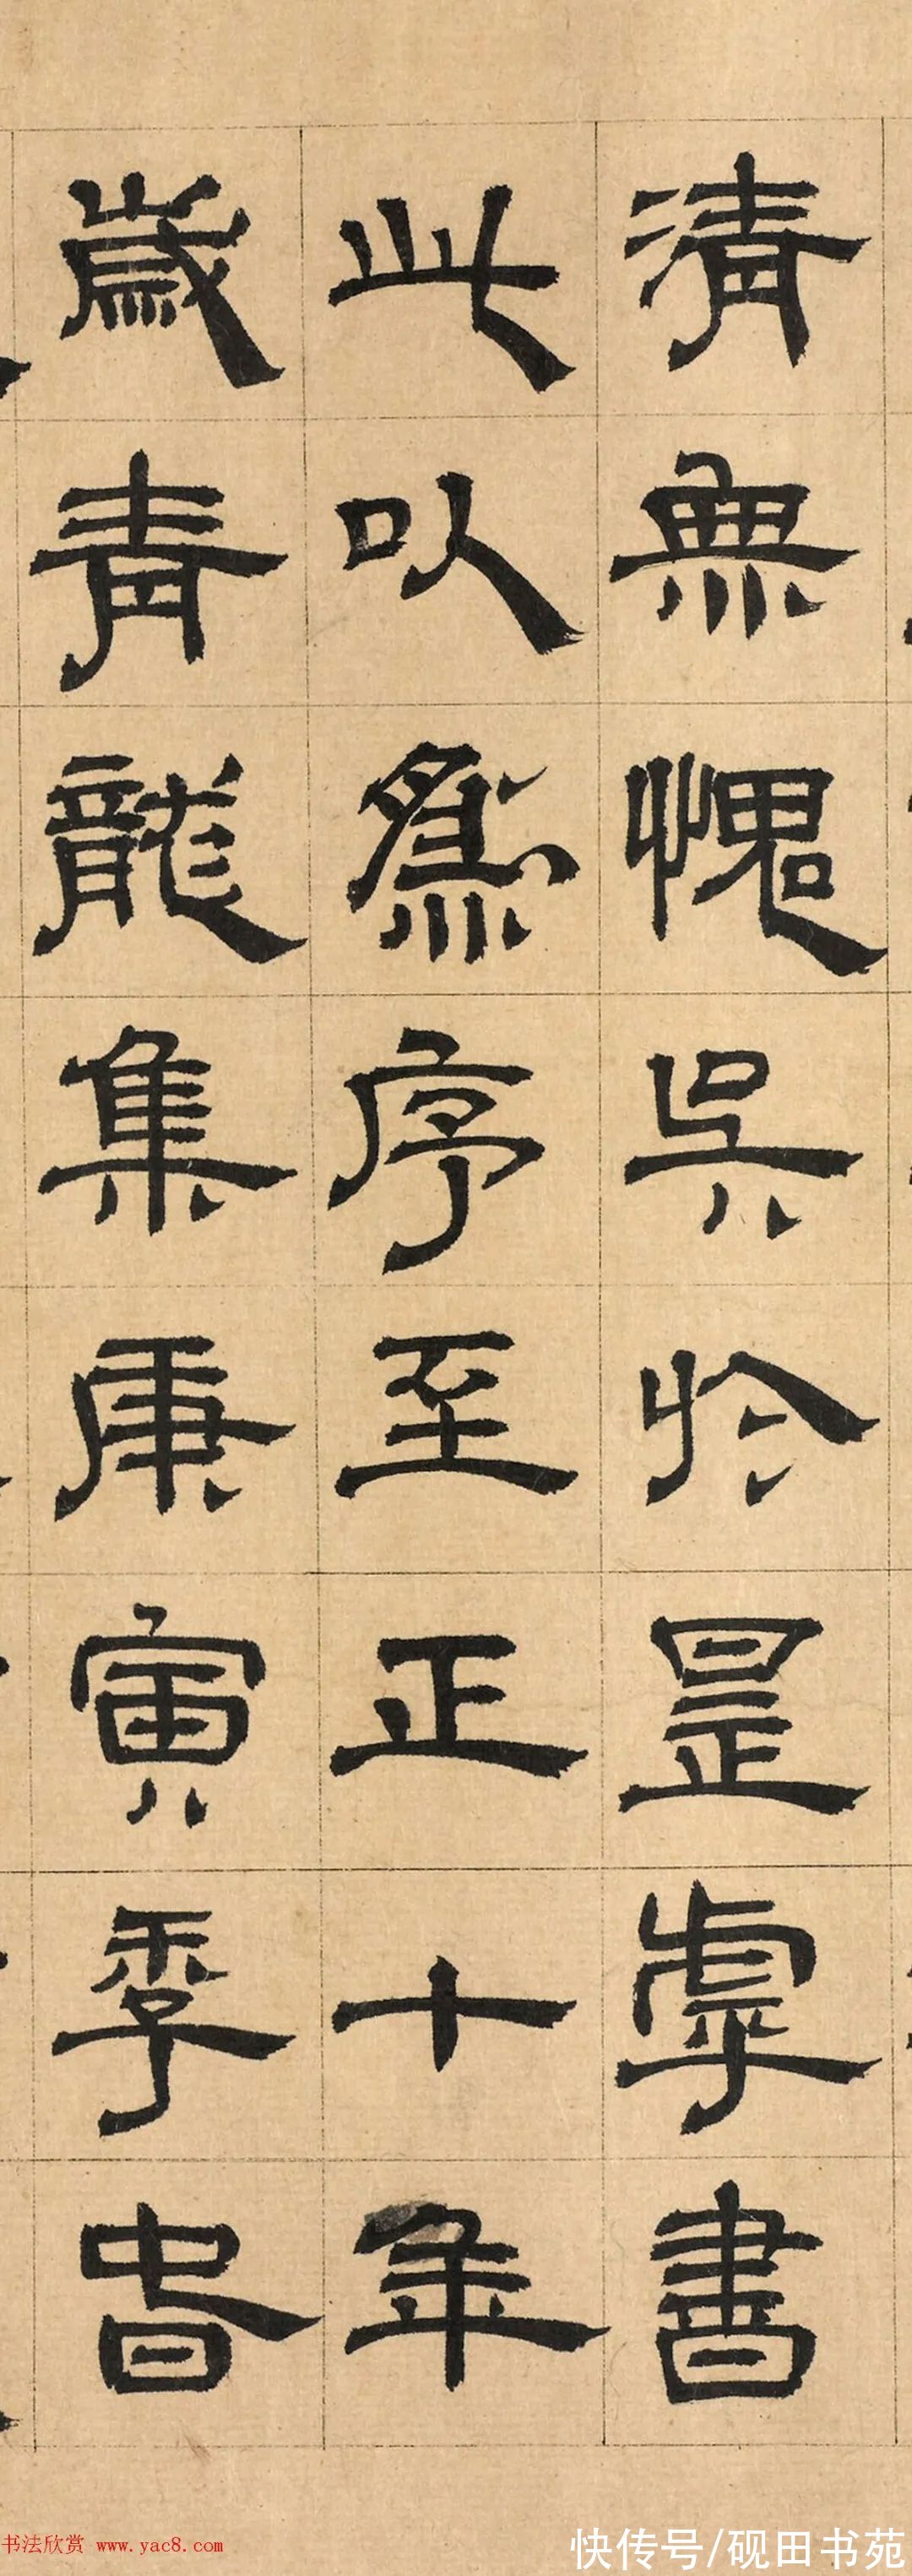 清無愧吳於是虖書
此以為序至正十年
歲青龍集庚寅季旾
书法欣赏 www.yac8.com
快传号/砚田书苑